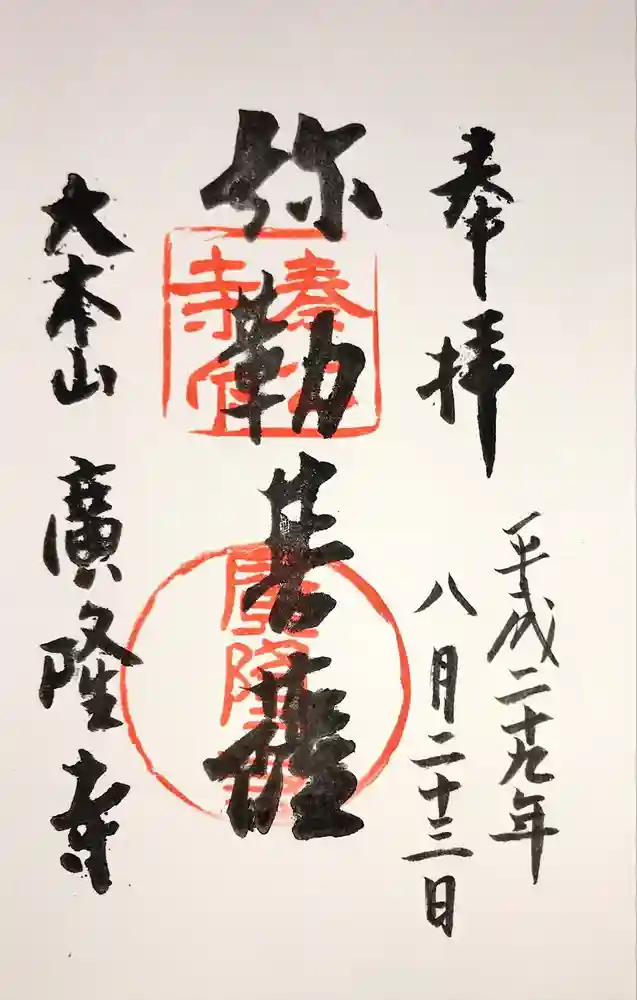 奉拝
平成二十九年
八月二十三日
弥勒菩薩
廣隆寺
大本山 廣隆寺